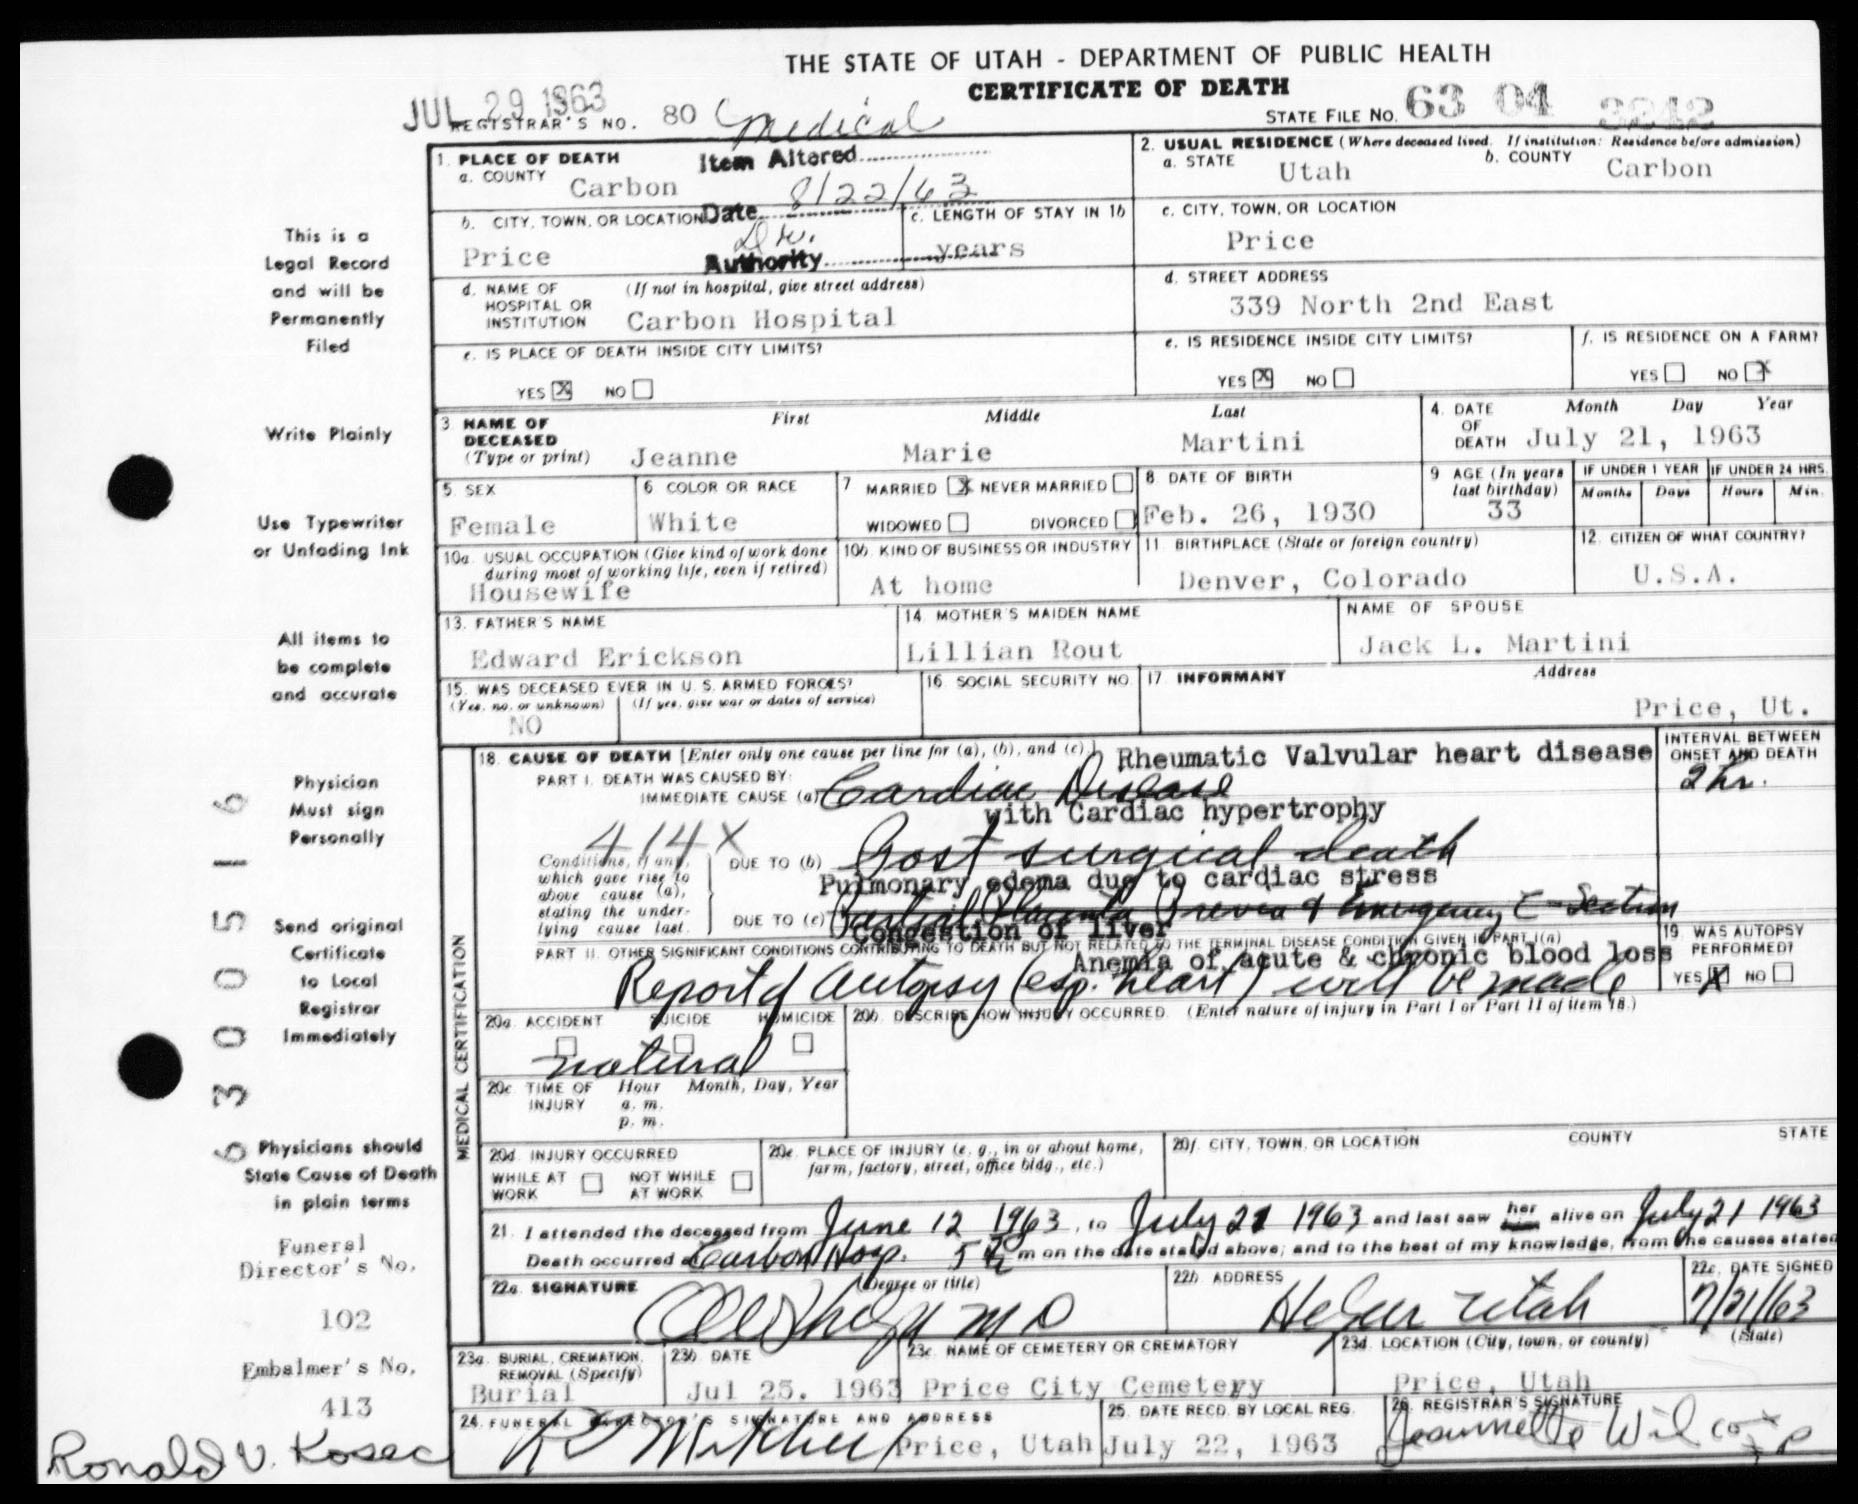 THE STATE OF UTAH - DEPARTMENT OF PUBLIC HEALTH
CERTIFICATE OF DEATH
JUL 29 1963
REGISTRAR'S NO. 80 Medical
STATE FILE NO. 63 04 3242
1. PLACE OF DEATH
a. COUNTY Carbon
Item Altered
Date 8/22/63
Authority Dr.
2. USUAL RESIDENCE (Where deceased lived. If institution: Residence before admission)
a. STATE Utah b. COUNTY Carbon
b. CITY, TOWN, OR LOCATION Price
c. LENGTH OF STAY IN 1b years
c. CITY, TOWN, OR LOCATION
Price
d. NAME OF HOSPITAL OR INSTITUTION (If not in hospital, give street address)
Carbon Hospital
d. STREET ADDRESS
339 North 2nd East
e. IS PLACE OF DEATH INSIDE CITY LIMITS?
YES X NO
e. IS RESIDENCE INSIDE CITY LIMITS?
YES X NO
f. IS RESIDENCE ON A FARM?
YES NO X
3 NAME OF DECEASED (Type or print)
First Middle Last
Jeanne Marie Martini
4. DATE OF DEATH Month Day Year
July 21, 1963
5 SEX
Female
6 COLOR OR RACE
White
7 MARRIED X NEVER MARRIED
WIDOWED DIVORCED
8. DATE OF BIRTH
Feb. 26, 1930
9 AGE (In years last birthday)
33
IF UNDER 1 YEAR Months Days
IF UNDER 24 HRS. Hours Min.
10a. USUAL OCCUPATION (Give kind of work done during most of working life, even if retired)
Housewife
10b. KIND OF BUSINESS OR INDUSTRY
At home
11. BIRTHPLACE (State or foreign country)
Denver, Colorado
12. CITIZEN OF WHAT COUNTRY?
U.S.A.
13. FATHER'S NAME
Edward Erickson
14. MOTHER'S MAIDEN NAME
Lillian Rout
NAME OF SPOUSE
Jack L. Martini
15. WAS DECEASED EVER IN U. S. ARMED FORCES?
(Yes, no, or unknown) (If yes, give war or dates of service)
NO
16. SOCIAL SECURITY NO.
17. INFORMANT Address
Price, Ut.
MEDICAL CERTIFICATION
18. CAUSE OF DEATH [Enter only one cause per line for (a), (b), and (c).]
Rheumatic Valvular heart disease
INTERVAL BETWEEN ONSET AND DEATH
2 hr.
PART I. DEATH WAS CAUSED BY:
IMMEDIATE CAUSE (a) Cardiac Disease
with Cardiac hypertrophy
414X
Conditions, if any, which gave rise to above cause (a), stating the underlying cause last.
DUE TO (b) Post surgical death
Pulmonary edema due to cardiac stress
DUE TO (c) Partial Placenta Previa & Emergency C-Section
Congestion of liver
PART II. OTHER SIGNIFICANT CONDITIONS CONTRIBUTING TO DEATH BUT NOT RELATED TO THE TERMINAL DISEASE CONDITION GIVEN IN PART I(a)
Anemia of acute & chronic blood loss
Report of Autopsy (esp. heart) will be made
19. WAS AUTOPSY PERFORMED?
YES X NO
20a. ACCIDENT SUICIDE HOMICIDE
natural
20b. DESCRIBE HOW INJURY OCCURRED. (Enter nature of injury in Part I or Part II of item 18.)
20c TIME OF INJURY Hour Month, Day, Year
a. m.
p. m.
20d. INJURY OCCURRED
WHILE AT WORK NOT WHILE AT WORK
20e. PLACE OF INJURY (e. g., in or about home, farm, factory, street, office bldg., etc.)
20f. CITY, TOWN, OR LOCATION COUNTY STATE
21. I attended the deceased from June 12 1963, to July 21 1963 and last saw her alive on July 21 1963
Death occurred Carbon Hosp. m on the date stated above; and to the best of my knowledge, from the causes stated
22a. SIGNATURE (Degree or title)
M D
22b. ADDRESS
Helper Utah
22c. DATE SIGNED
7/21/63
23a. BURIAL, CREMATION, REMOVAL (Specify)
Burial
23b DATE
Jul 25. 1963
23c. NAME OF CEMETERY OR CREMATORY
Price City Cemetery
23d. LOCATION (City, town, or county) (State)
Price, Utah
24. FUNERAL DIRECTOR'S SIGNATURE AND ADDRESS
Price, Utah
25. DATE RECD. BY LOCAL REG.
July 22, 1963
26. REGISTRAR'S SIGNATURE
Jeannette Wilcox
This is a
Legal Record
and will be
Permanently
Filed
Write Plainly
Use Typewriter
or Unfading Ink
All items to
be complete
and accurate
Physician
Must sign
Personally
Send original
Certificate
to Local
Registrar
Immediately
Physicians should
State Cause of Death
in plain terms
Funeral
Director's No.
102
Embalmer's No.
413
Ronald V. Kosec
6 3 0 0 5 1 6